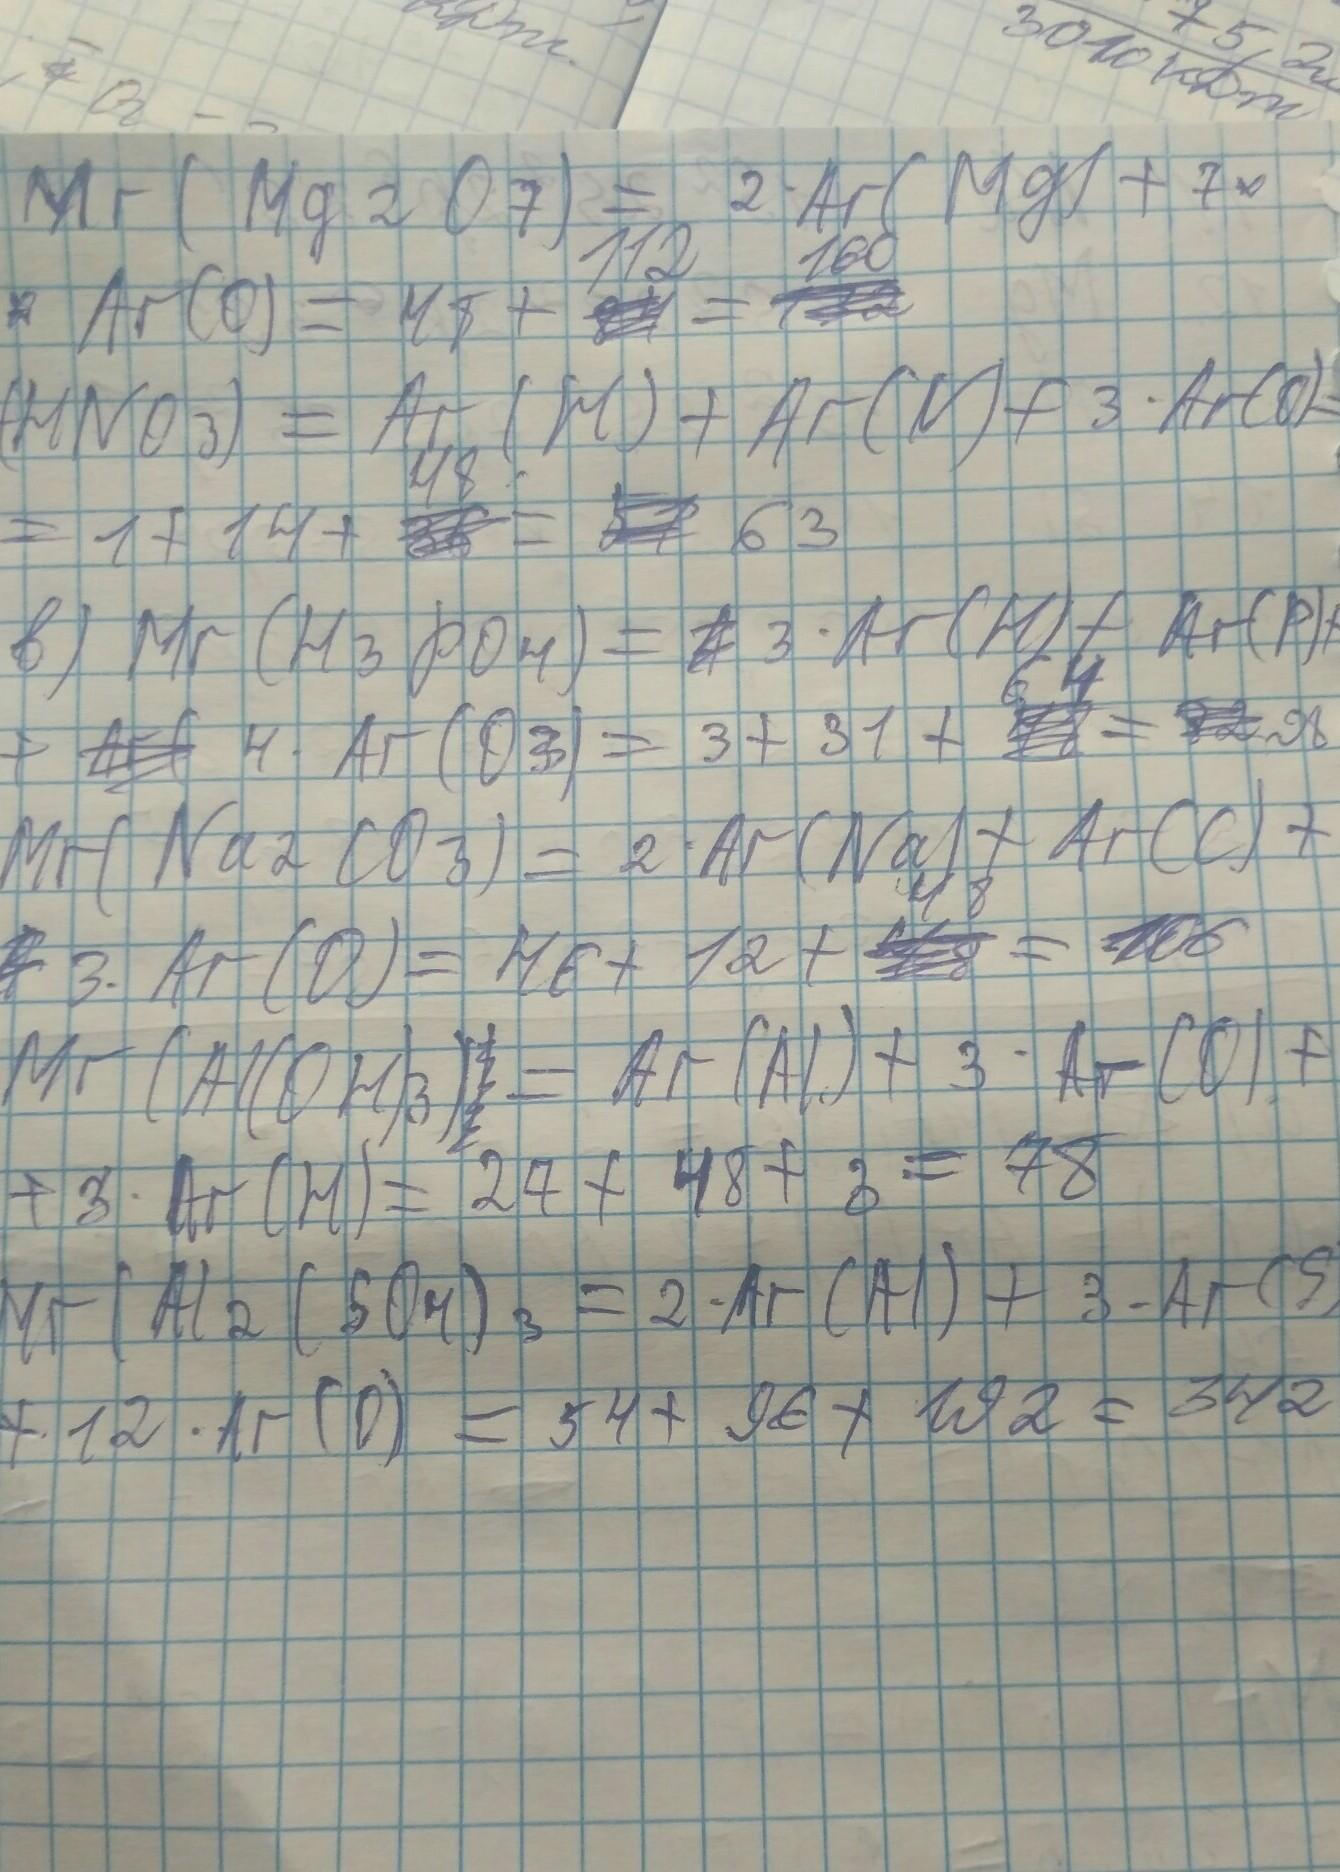 75,2
3010 кДж
Mr(Mg2O7) = 2·Ar(Mg) + 7×
112 160
× Ar(O) = 48 + =
(HNO3) = Ar(H) + Ar(N) + 3·Ar(O)=
48
= 1 + 14 + = 63
в) Mr(H3PO4) = 3·Ar(H) + Ar(P)+
64
+ 4·Ar(O3) = 3 + 31 + = 98
Mr(Na2CO3) = 2·Ar(Na) + Ar(C) +
48
3·Ar(O) = 46 + 12 + = 106
Mr(Al(OH)3) = Ar(Al) + 3·Ar(O) +
+ 3·Ar(H) = 27 + 48 + 3 = 78
Mr(Al2(SO4)3 = 2·Ar(Al) + 3·Ar(S)
+ 12·Ar(O) = 54 + 96 + 192 = 342